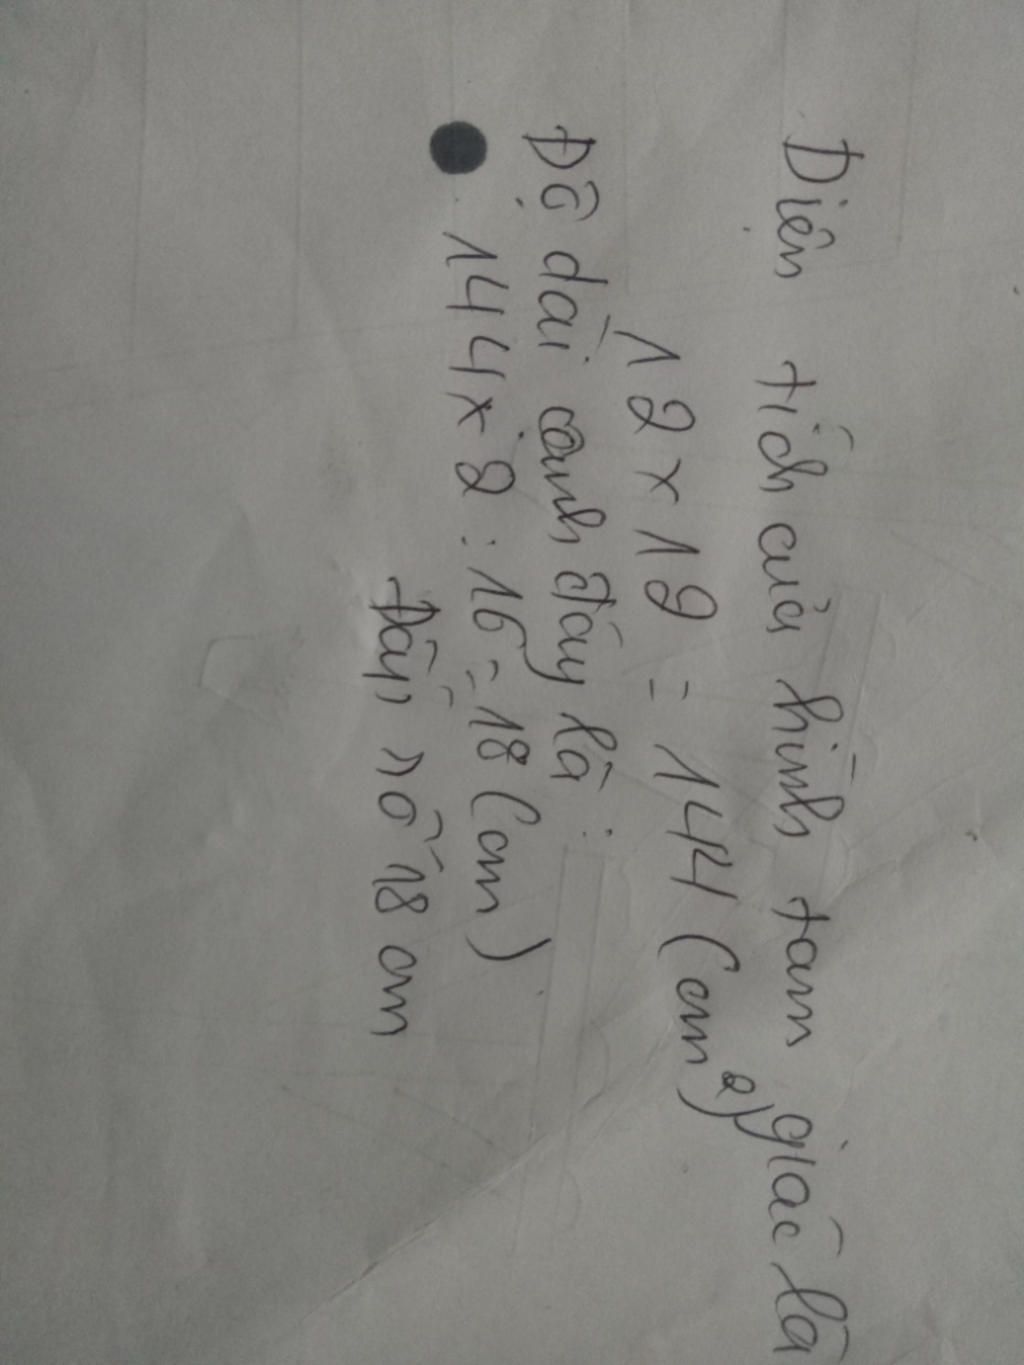 Diện tích của hình tam giác là
12 x 12 = 144 (cm2)
Độ dài cạnh đáy là :
144 x 2 : 16 = 18 (cm)
Đáp số 18 cm